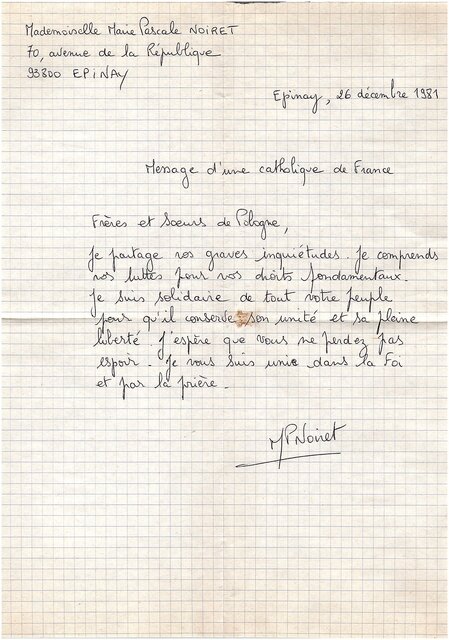 Mademoiselle Marie Pascale NOIRET
70, avenue de la République
93800 EPINAY
Epinay, 26 décembre 1981
Message d'une catholique de France
Frères et Soeurs de Pologne,
Je partage vos graves inquiétudes. Je comprends
vos luttes pour vos droits fondamentaux.
Je suis solidaire de tout votre peuple
pour qu'il conserve son unité et sa pleine
liberté. J'espère que vous ne perdez pas
espoir. Je vous suis unie dans la Foi
et par la prière.
MPNoiret